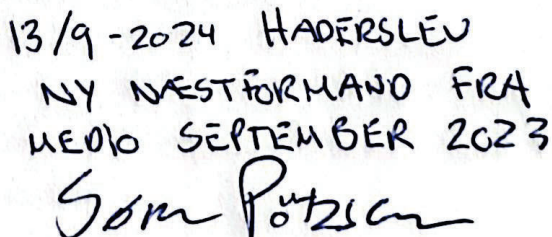 13/9-2024 HADERSLEV
NY NÆSTFORMAND FRA
MEDIO SEPTEMBER 2023
Søren